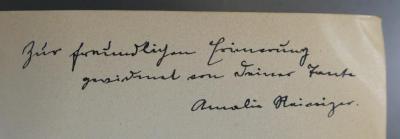 Zur freundlichen Erinnerung
gewidmet von Deiner Tante
Amalie